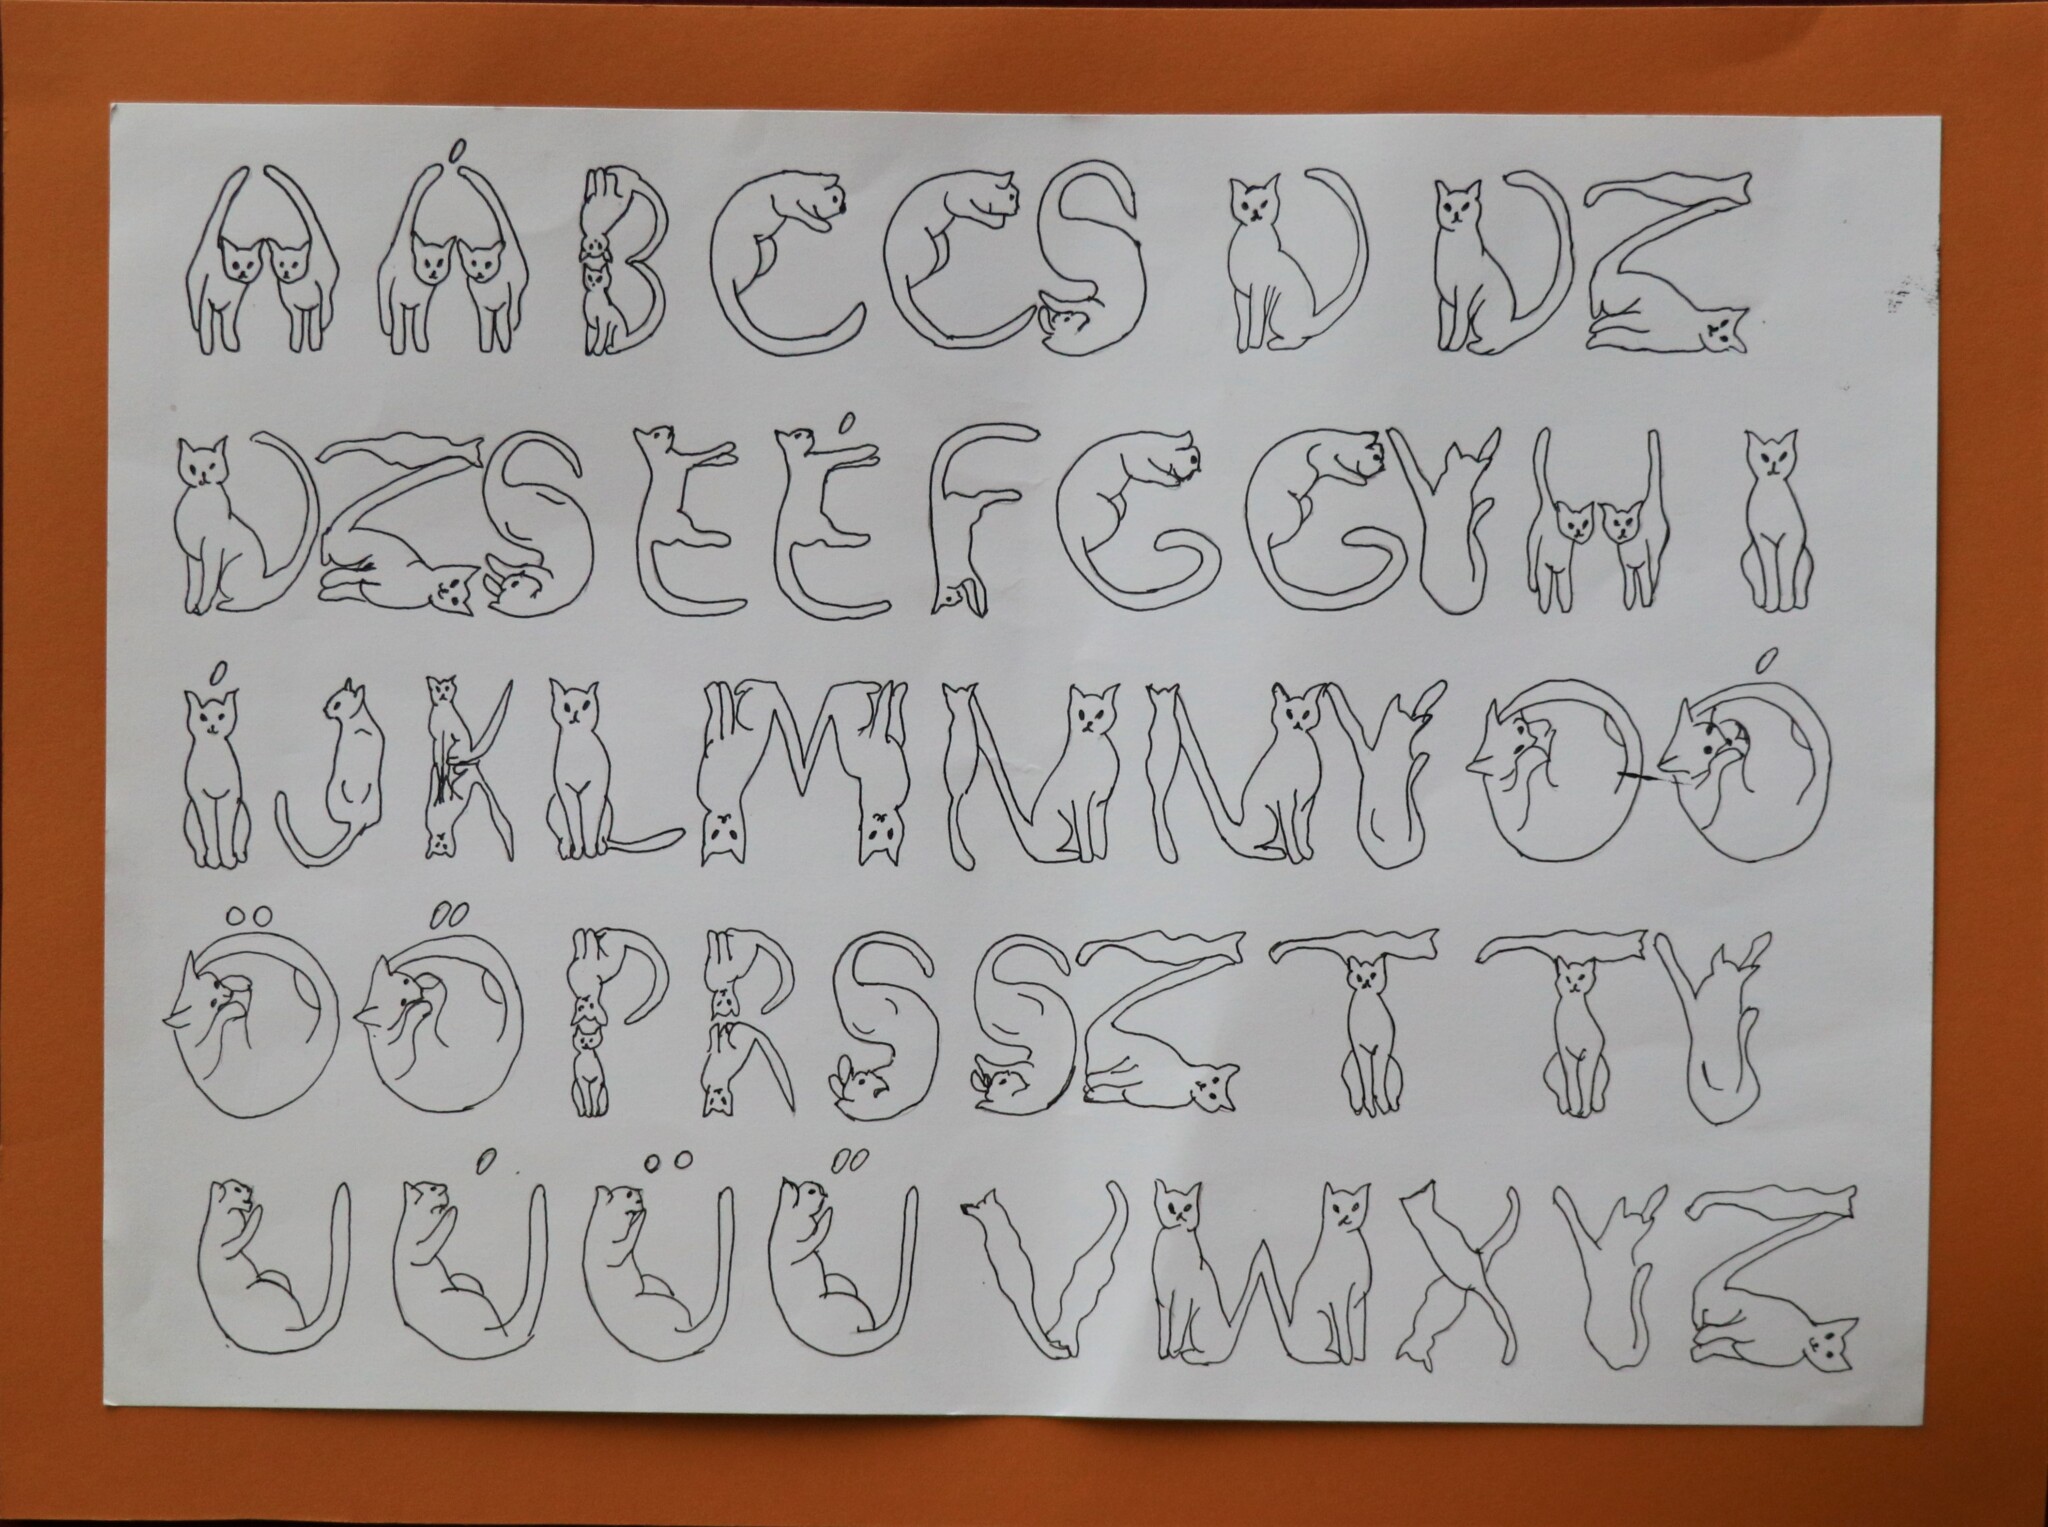 A Á B C CS D DZ
DZS E É F G GY H I
Í J K L M N NY O Ó
Ö Ő P R S SZ T TY
U Ú Ü Ű V W X Y Z